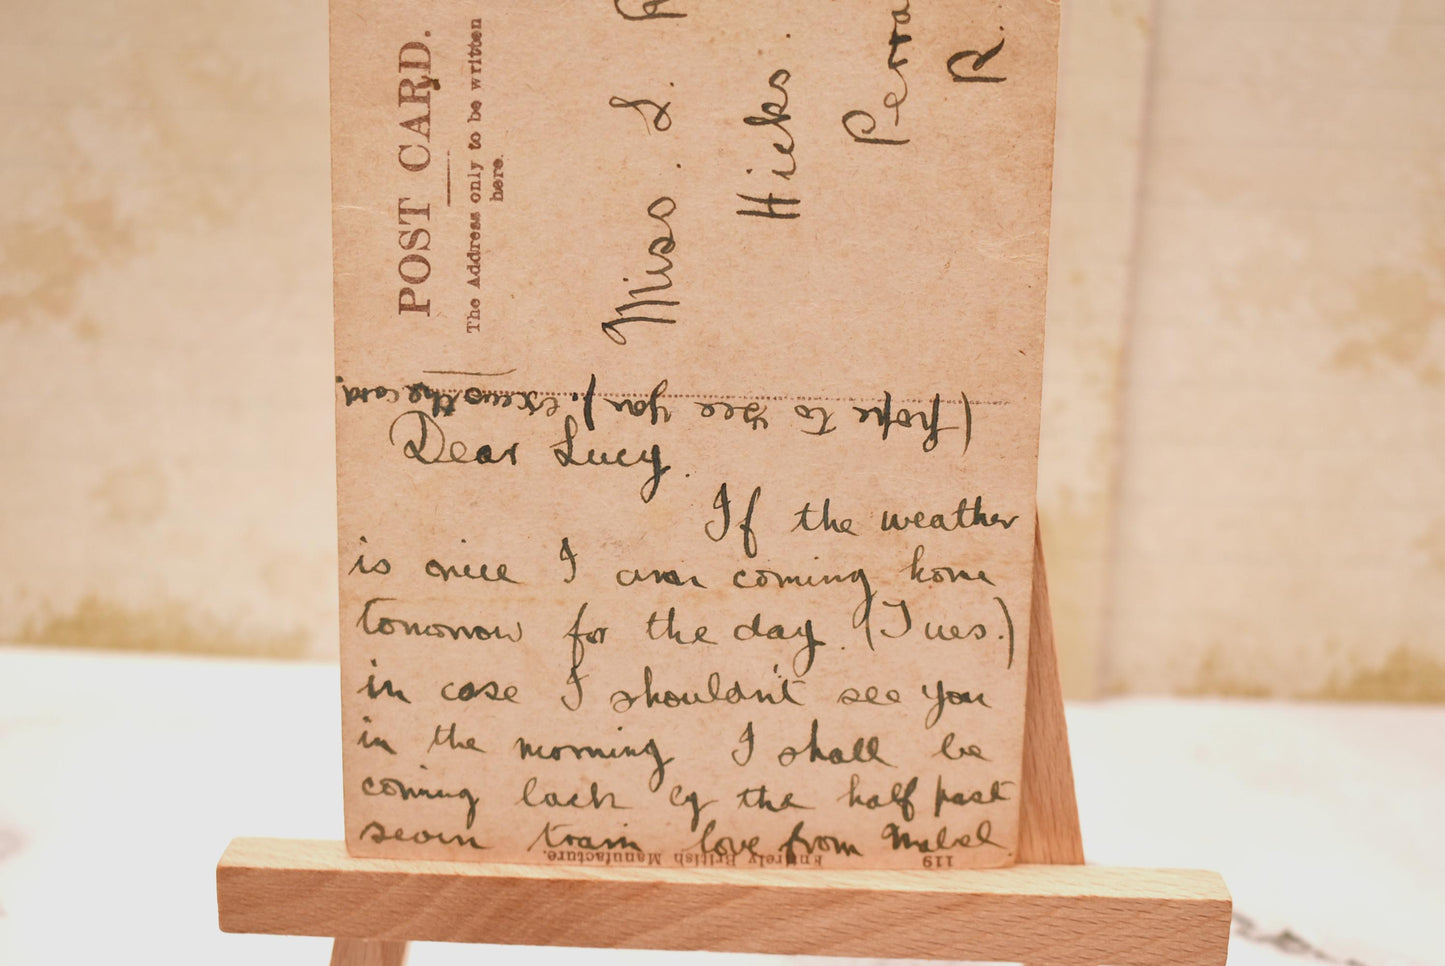 POST CARD.
The Address only to be written
here.
Miss. L.
Hicks.
R.
(hope to see you). excuse the card.
Dear Lucy.
If the weather
is nice I am coming home
tomorrow for the day. (Tues.)
in case I shouldn't see you
in the morning I shall be
coming back by the half past
seven train love from Mabel
119
Entirely British Manufacture.